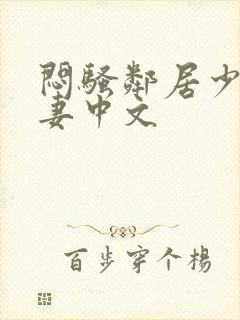 悶騷鄰居少
妻中文
百步穿个楊